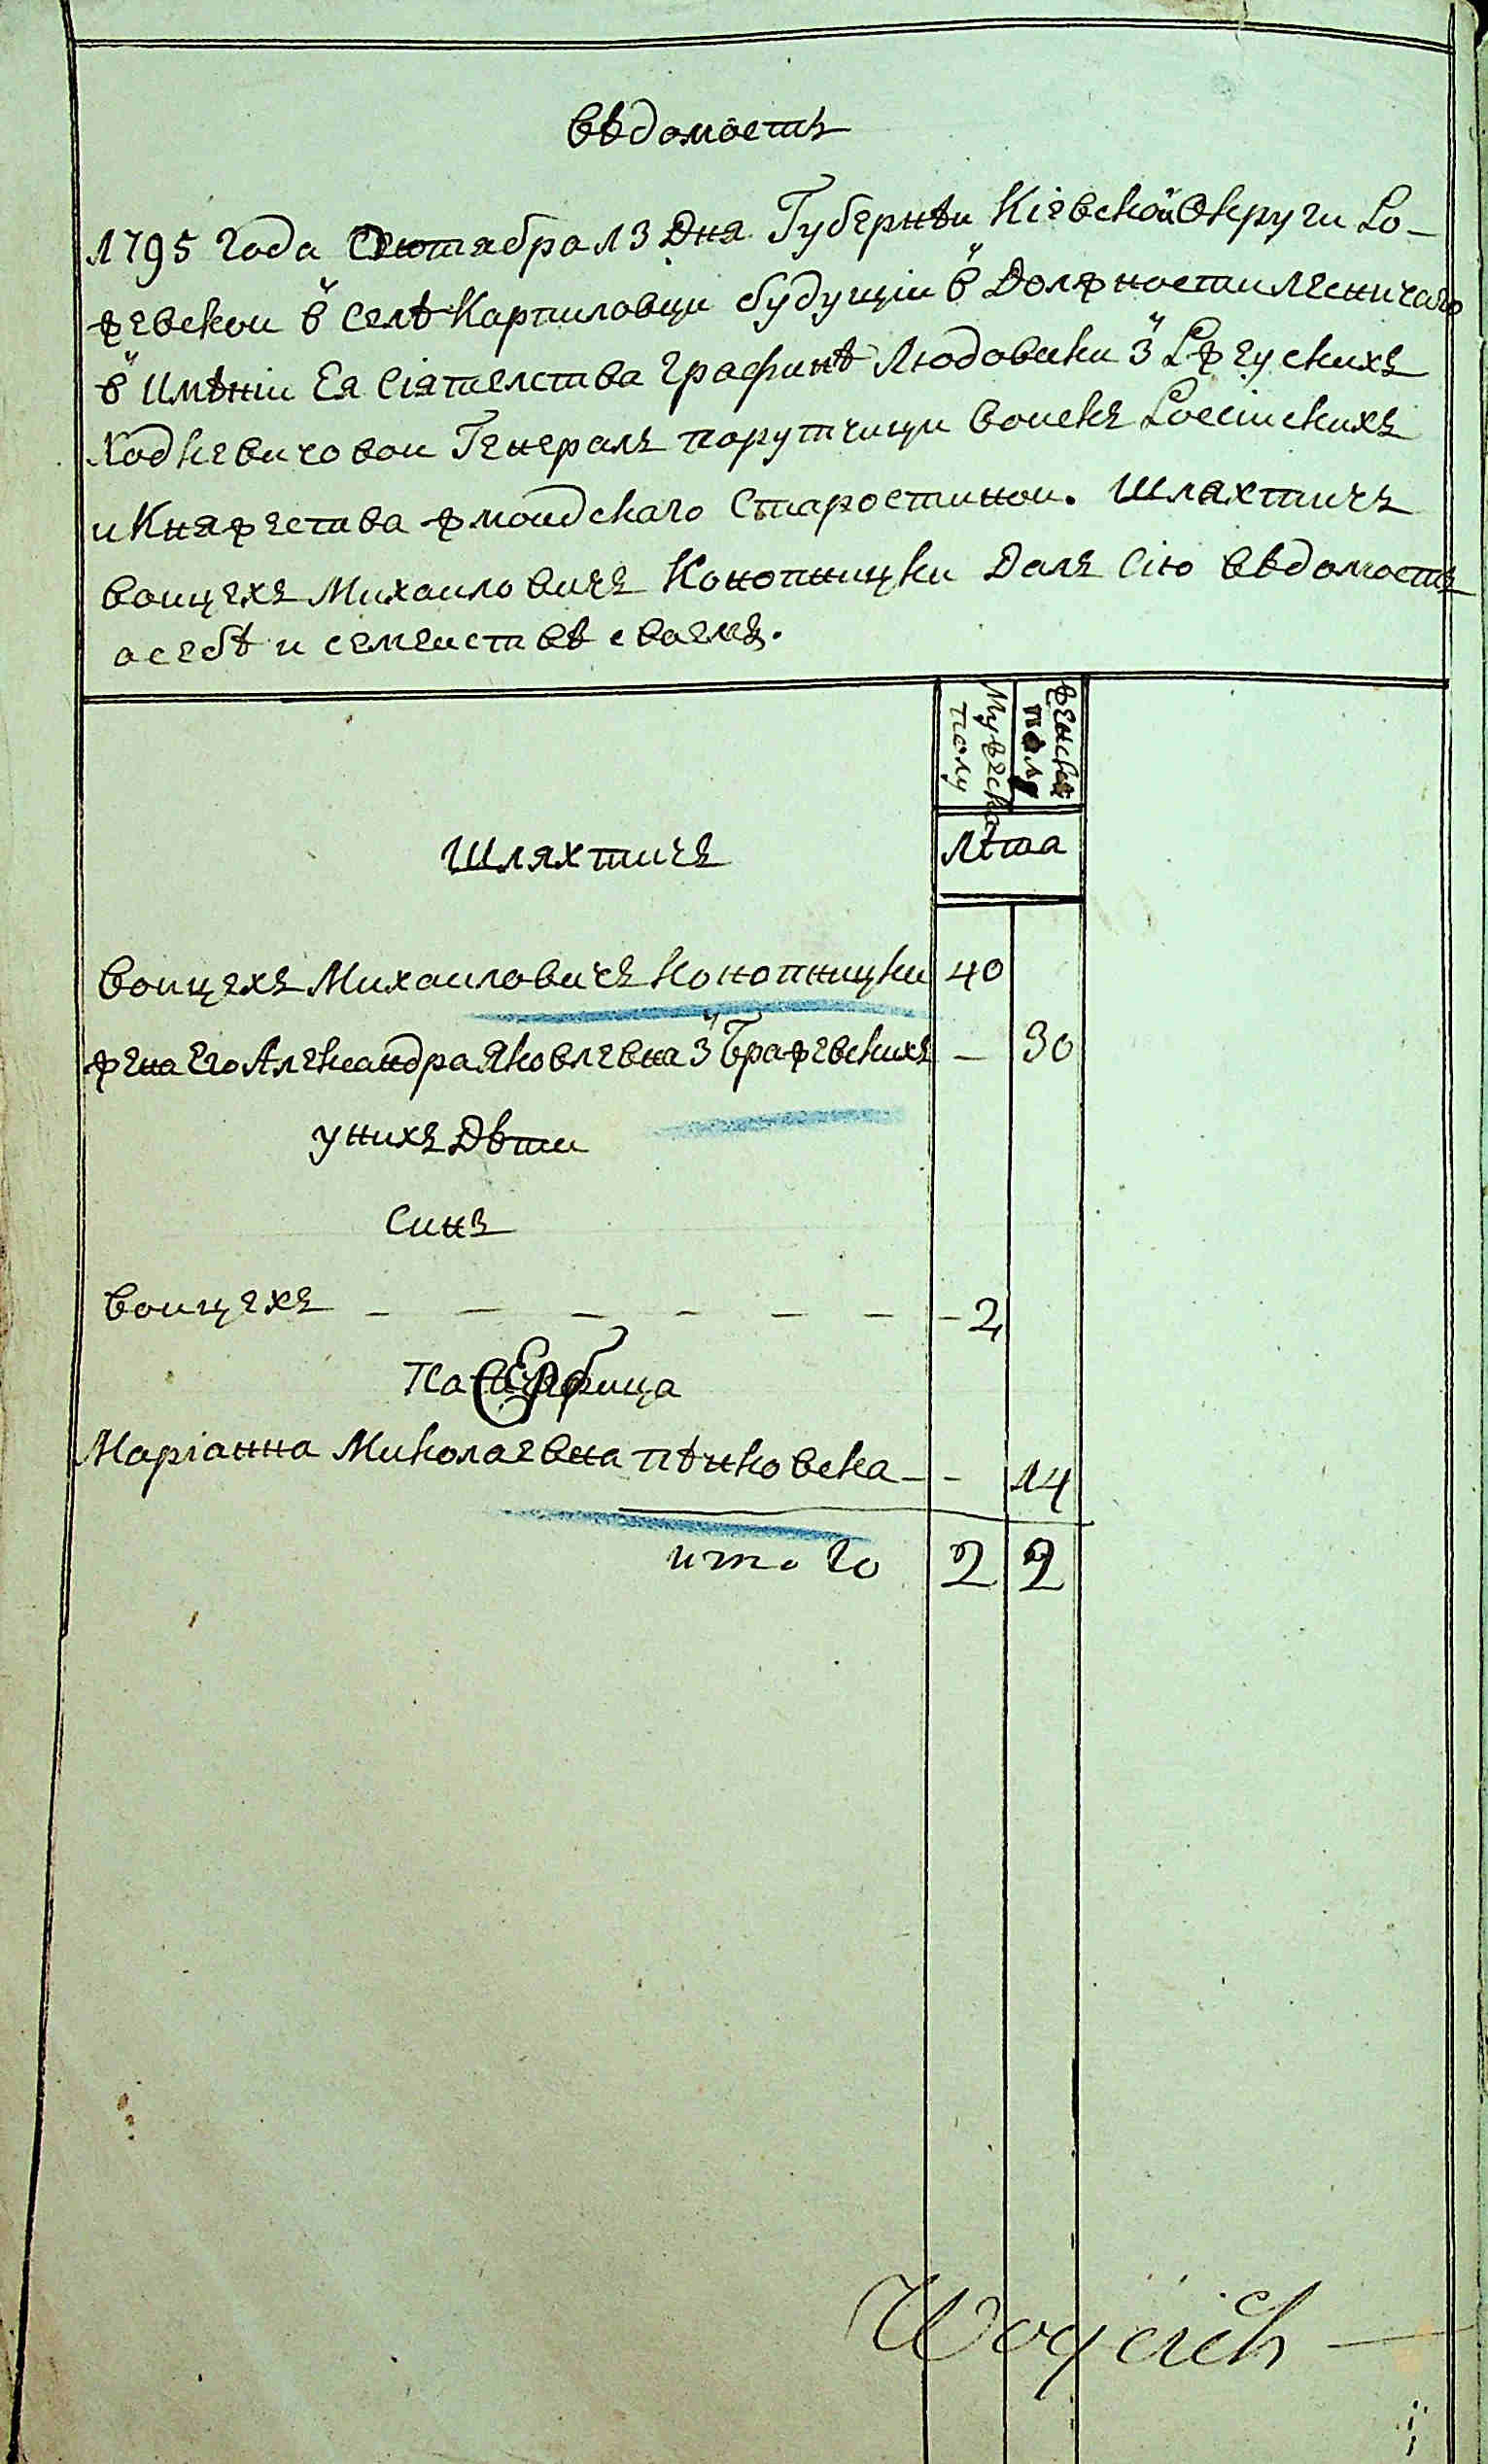 вѣдомость
1795 года Октября 13 Дня Губернѣи Кіевской Округи Ро-
жевской в Селѣ Карпиловци будущій в Должности лесничаго
в Имѣніи Ея Сіятелства Графинѣ Людовики З Ржеуских
Ходкевичовои Генералъ порутчици воискъ Россіискихъ
и Княжества жмоидскаго Старостинои. Шляхтичъ
воицехъ Михаиловичъ Конопницки Далъ Сію вѣдомость
о себѣ и семеиствѣ своемъ.
Мужеска полу
женска полу
Лѣта
Шляхтичъ
воицехъ Михаиловичъ Конопницки 40
жена Его Александра Яковлевна З Бражевскихъ — 30
у нихъ Дѣти
Синъ
воицехъ — — — — — — - 2
Марianна Миколаевна пѣнковска - - 14
итого 2 2
Woyciech —